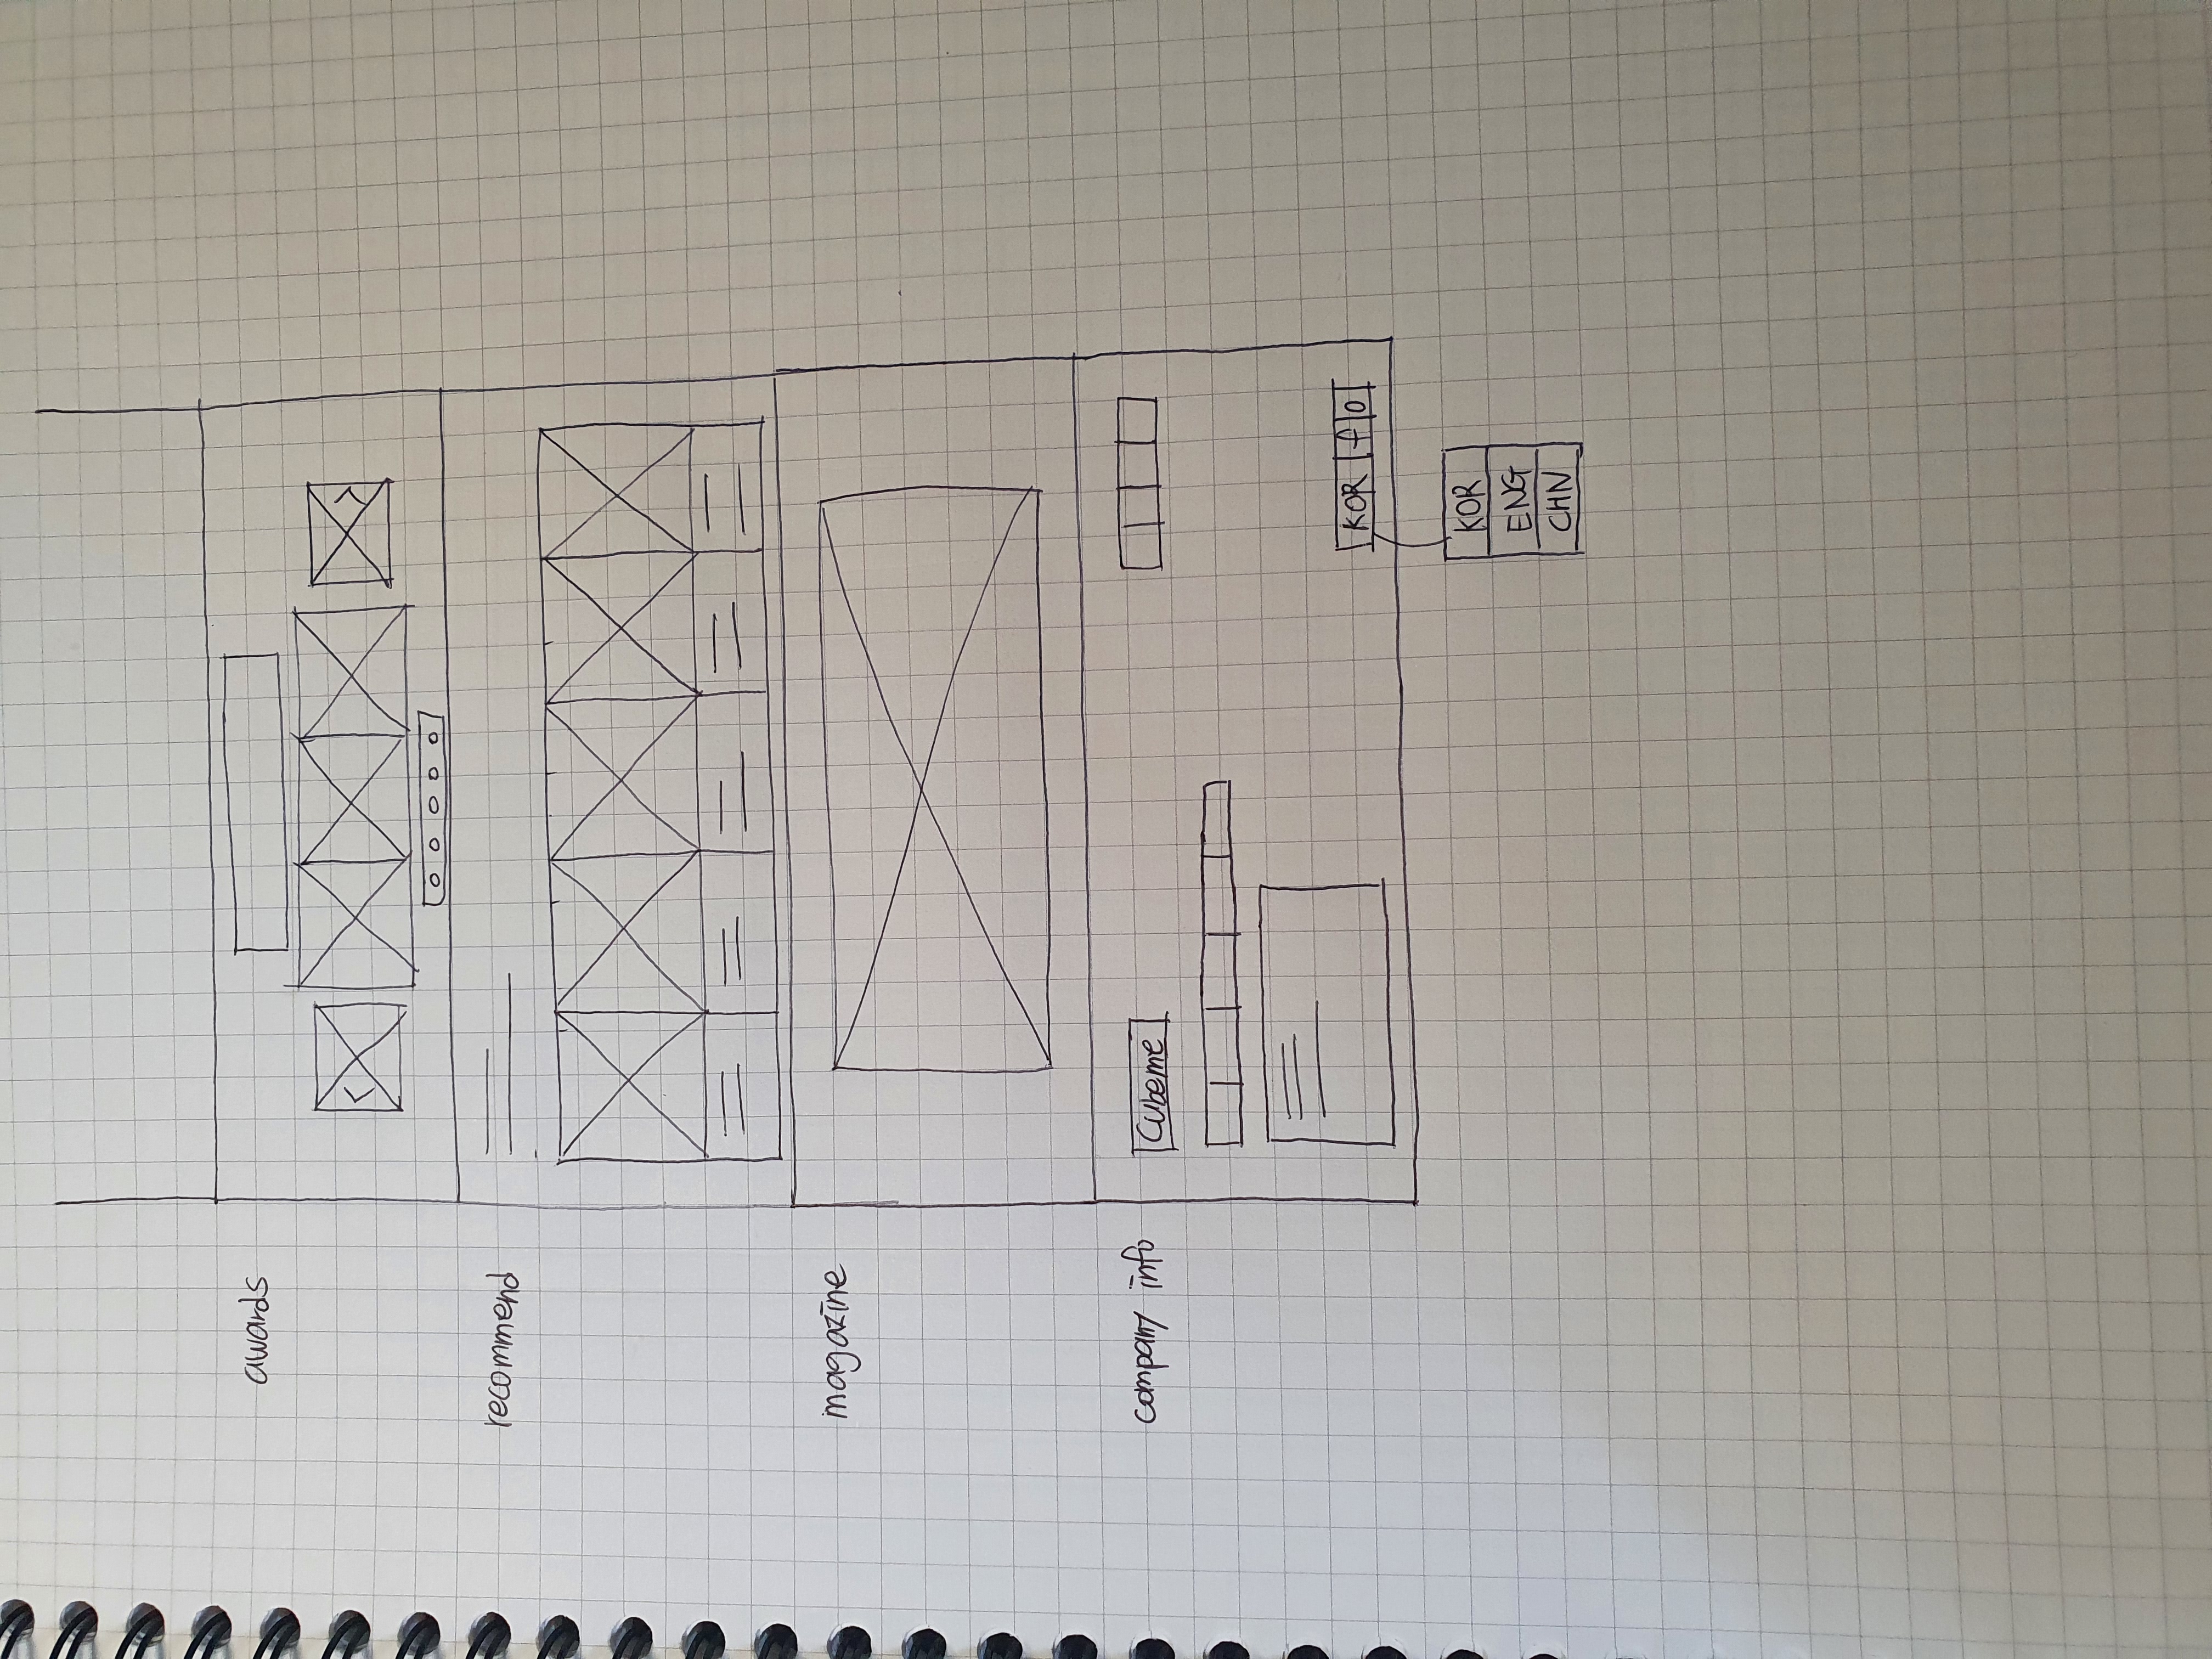 awards
< >
recommend
magazine
company info
Cubeme
KOR f o
KOR
ENG
CHN